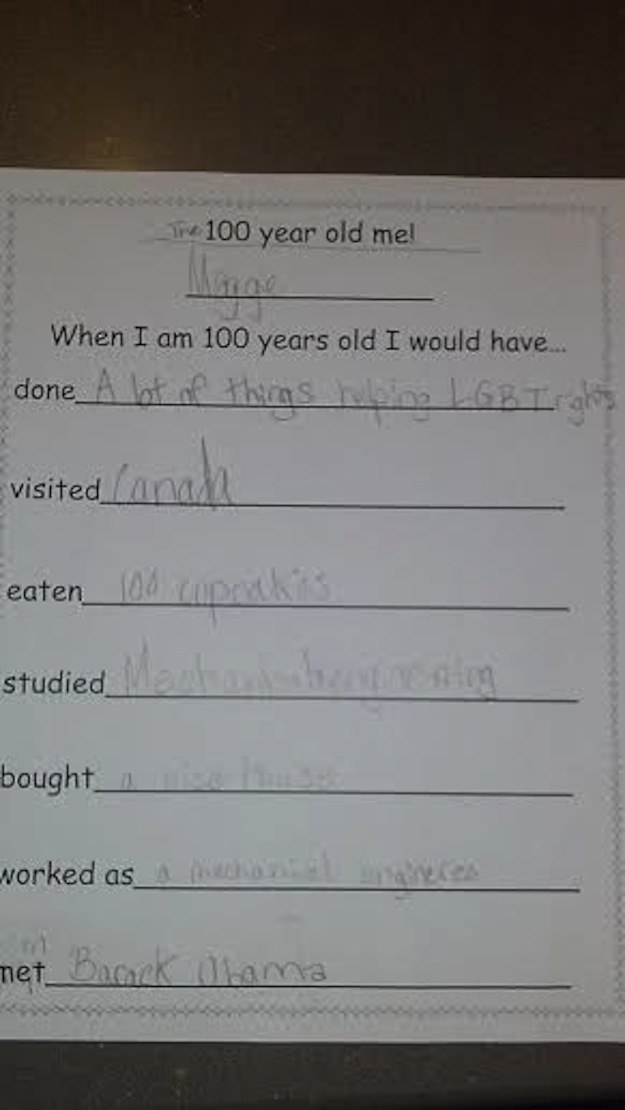 The 100 year old me!
Mayge
When I am 100 years old I would have...
done A lot of things helping LGBT rights
visited Canada
eaten 100 cupcakes
studied
bought a nice house
worked as a
met Barack Obama